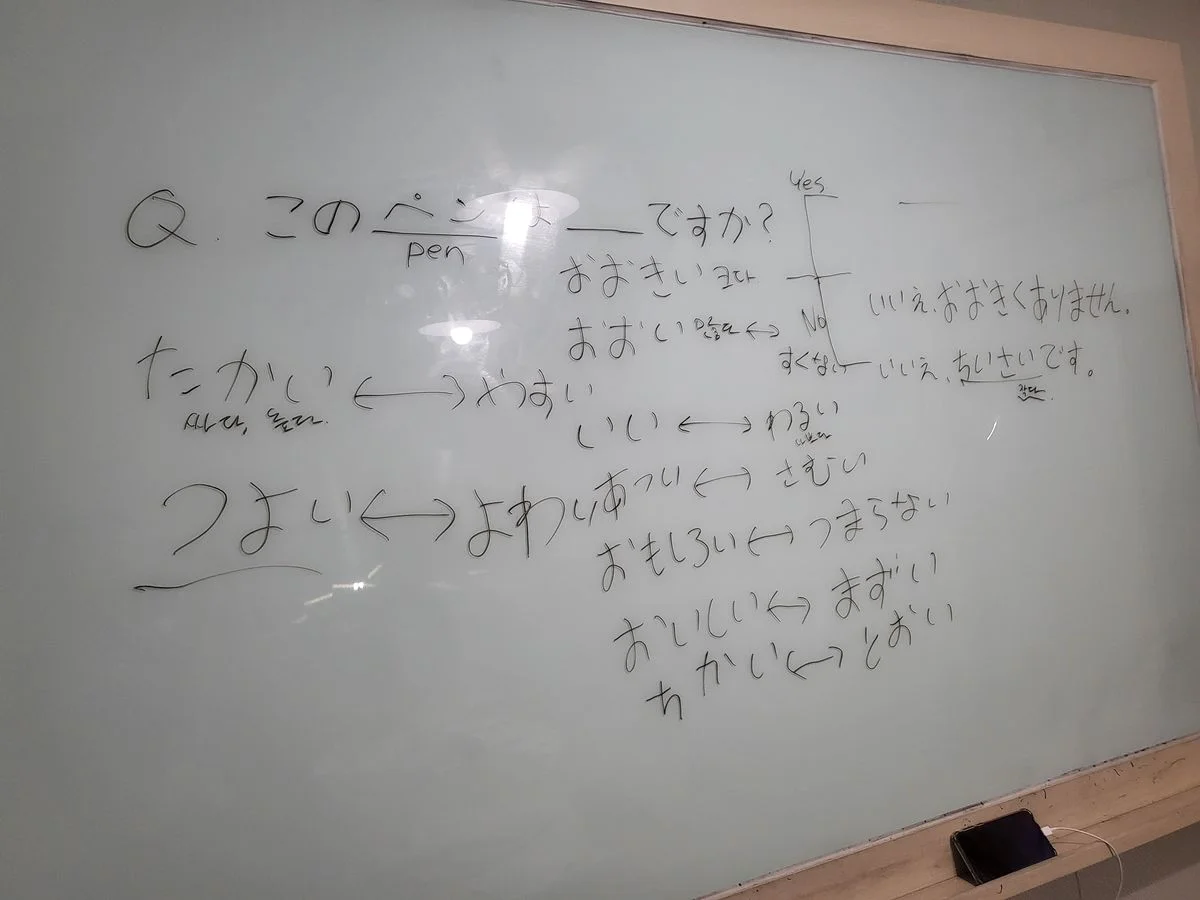 Q. このペンは__ですか?
pen
おおきい 크다
おおい 많다 ↔ すくない
たかい ↔ やすい
싸다, 높다.
いい ↔ わるい
나쁘다
つよい ↔ よわい
あつい ↔ さむい
おもしろい ↔ つまらない
おいしい ↔ まずい
ちかい ↔ とおい
Yes
No
いいえ、おおきくありません。
いいえ、ちいさいです。
작다.